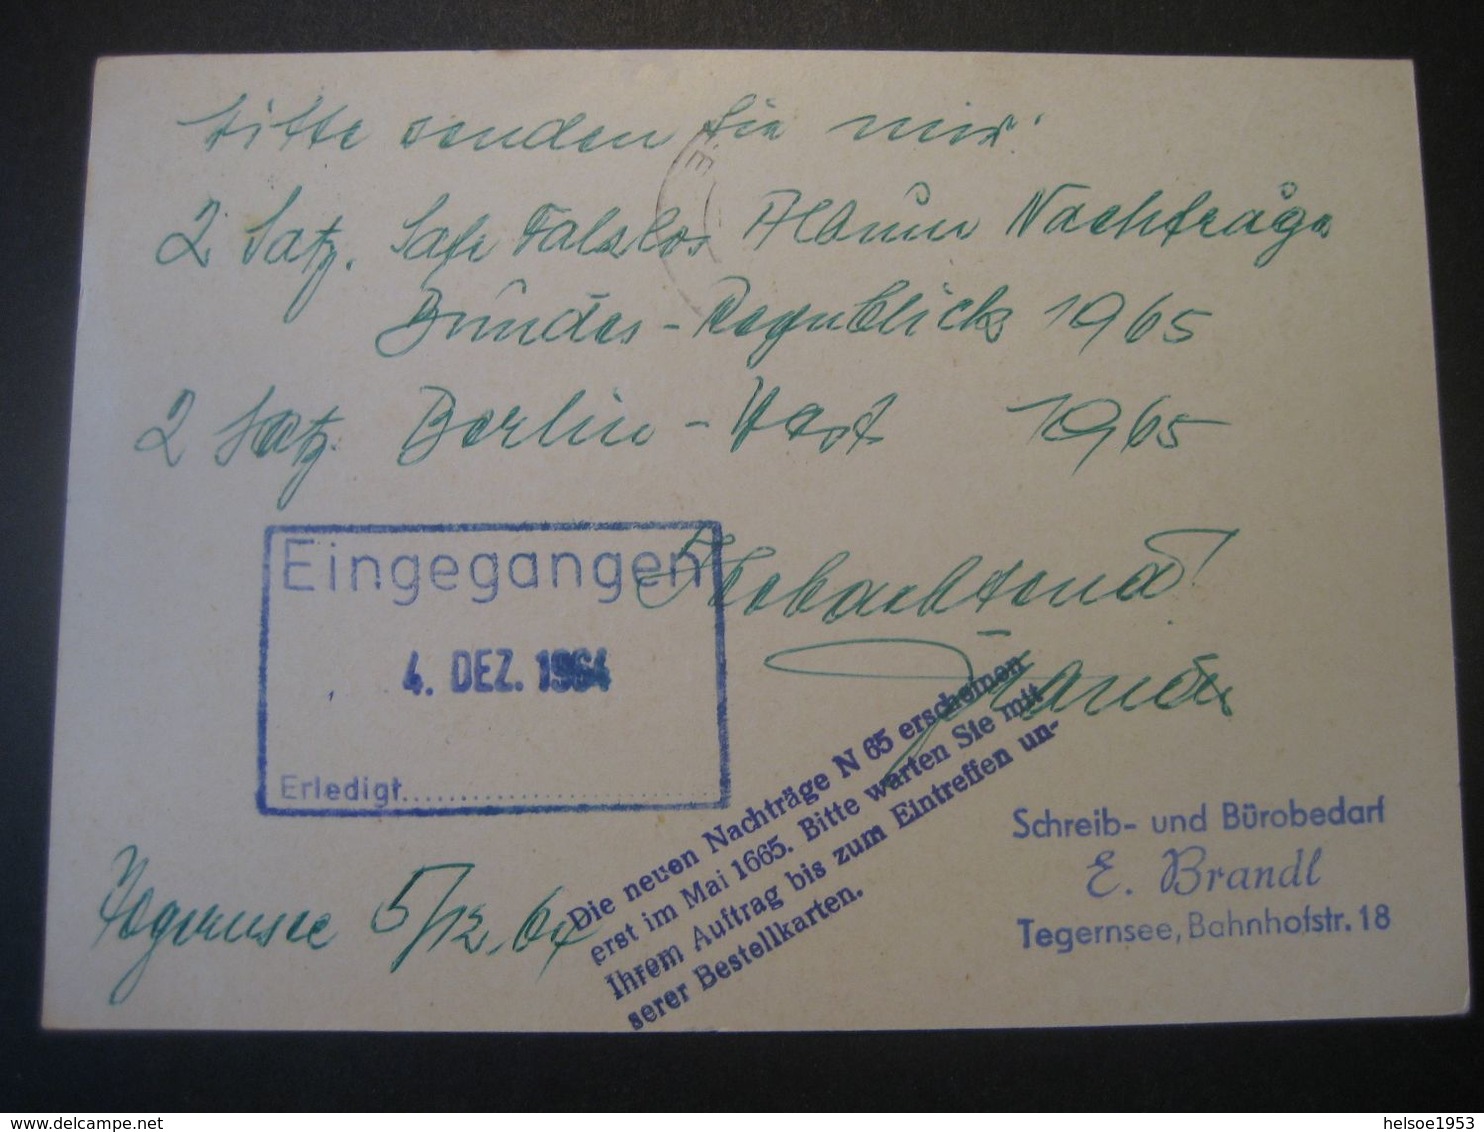 bitte senden Sie mir:
2 Satz. Safe Falzlos Album Nachträge
Bundes-Republick 1965
2 Satz. Berlin-West 1965
Hochachtend
Brandl
Eingegangen
4. DEZ. 1964
Erledigt
Tegernsee 5/12.64
Die neuen Nachträge N 65 erscheinen
erst im Mai 1665. Bitte warten Sie mit
Ihrem Auftrag bis zum Eintreffen un-
serer Bestellkarten.
Schreib- und Bürobedarf
E. Brandl
Tegernsee, Bahnhofstr. 18
www.delcampe.net
helsoe1953